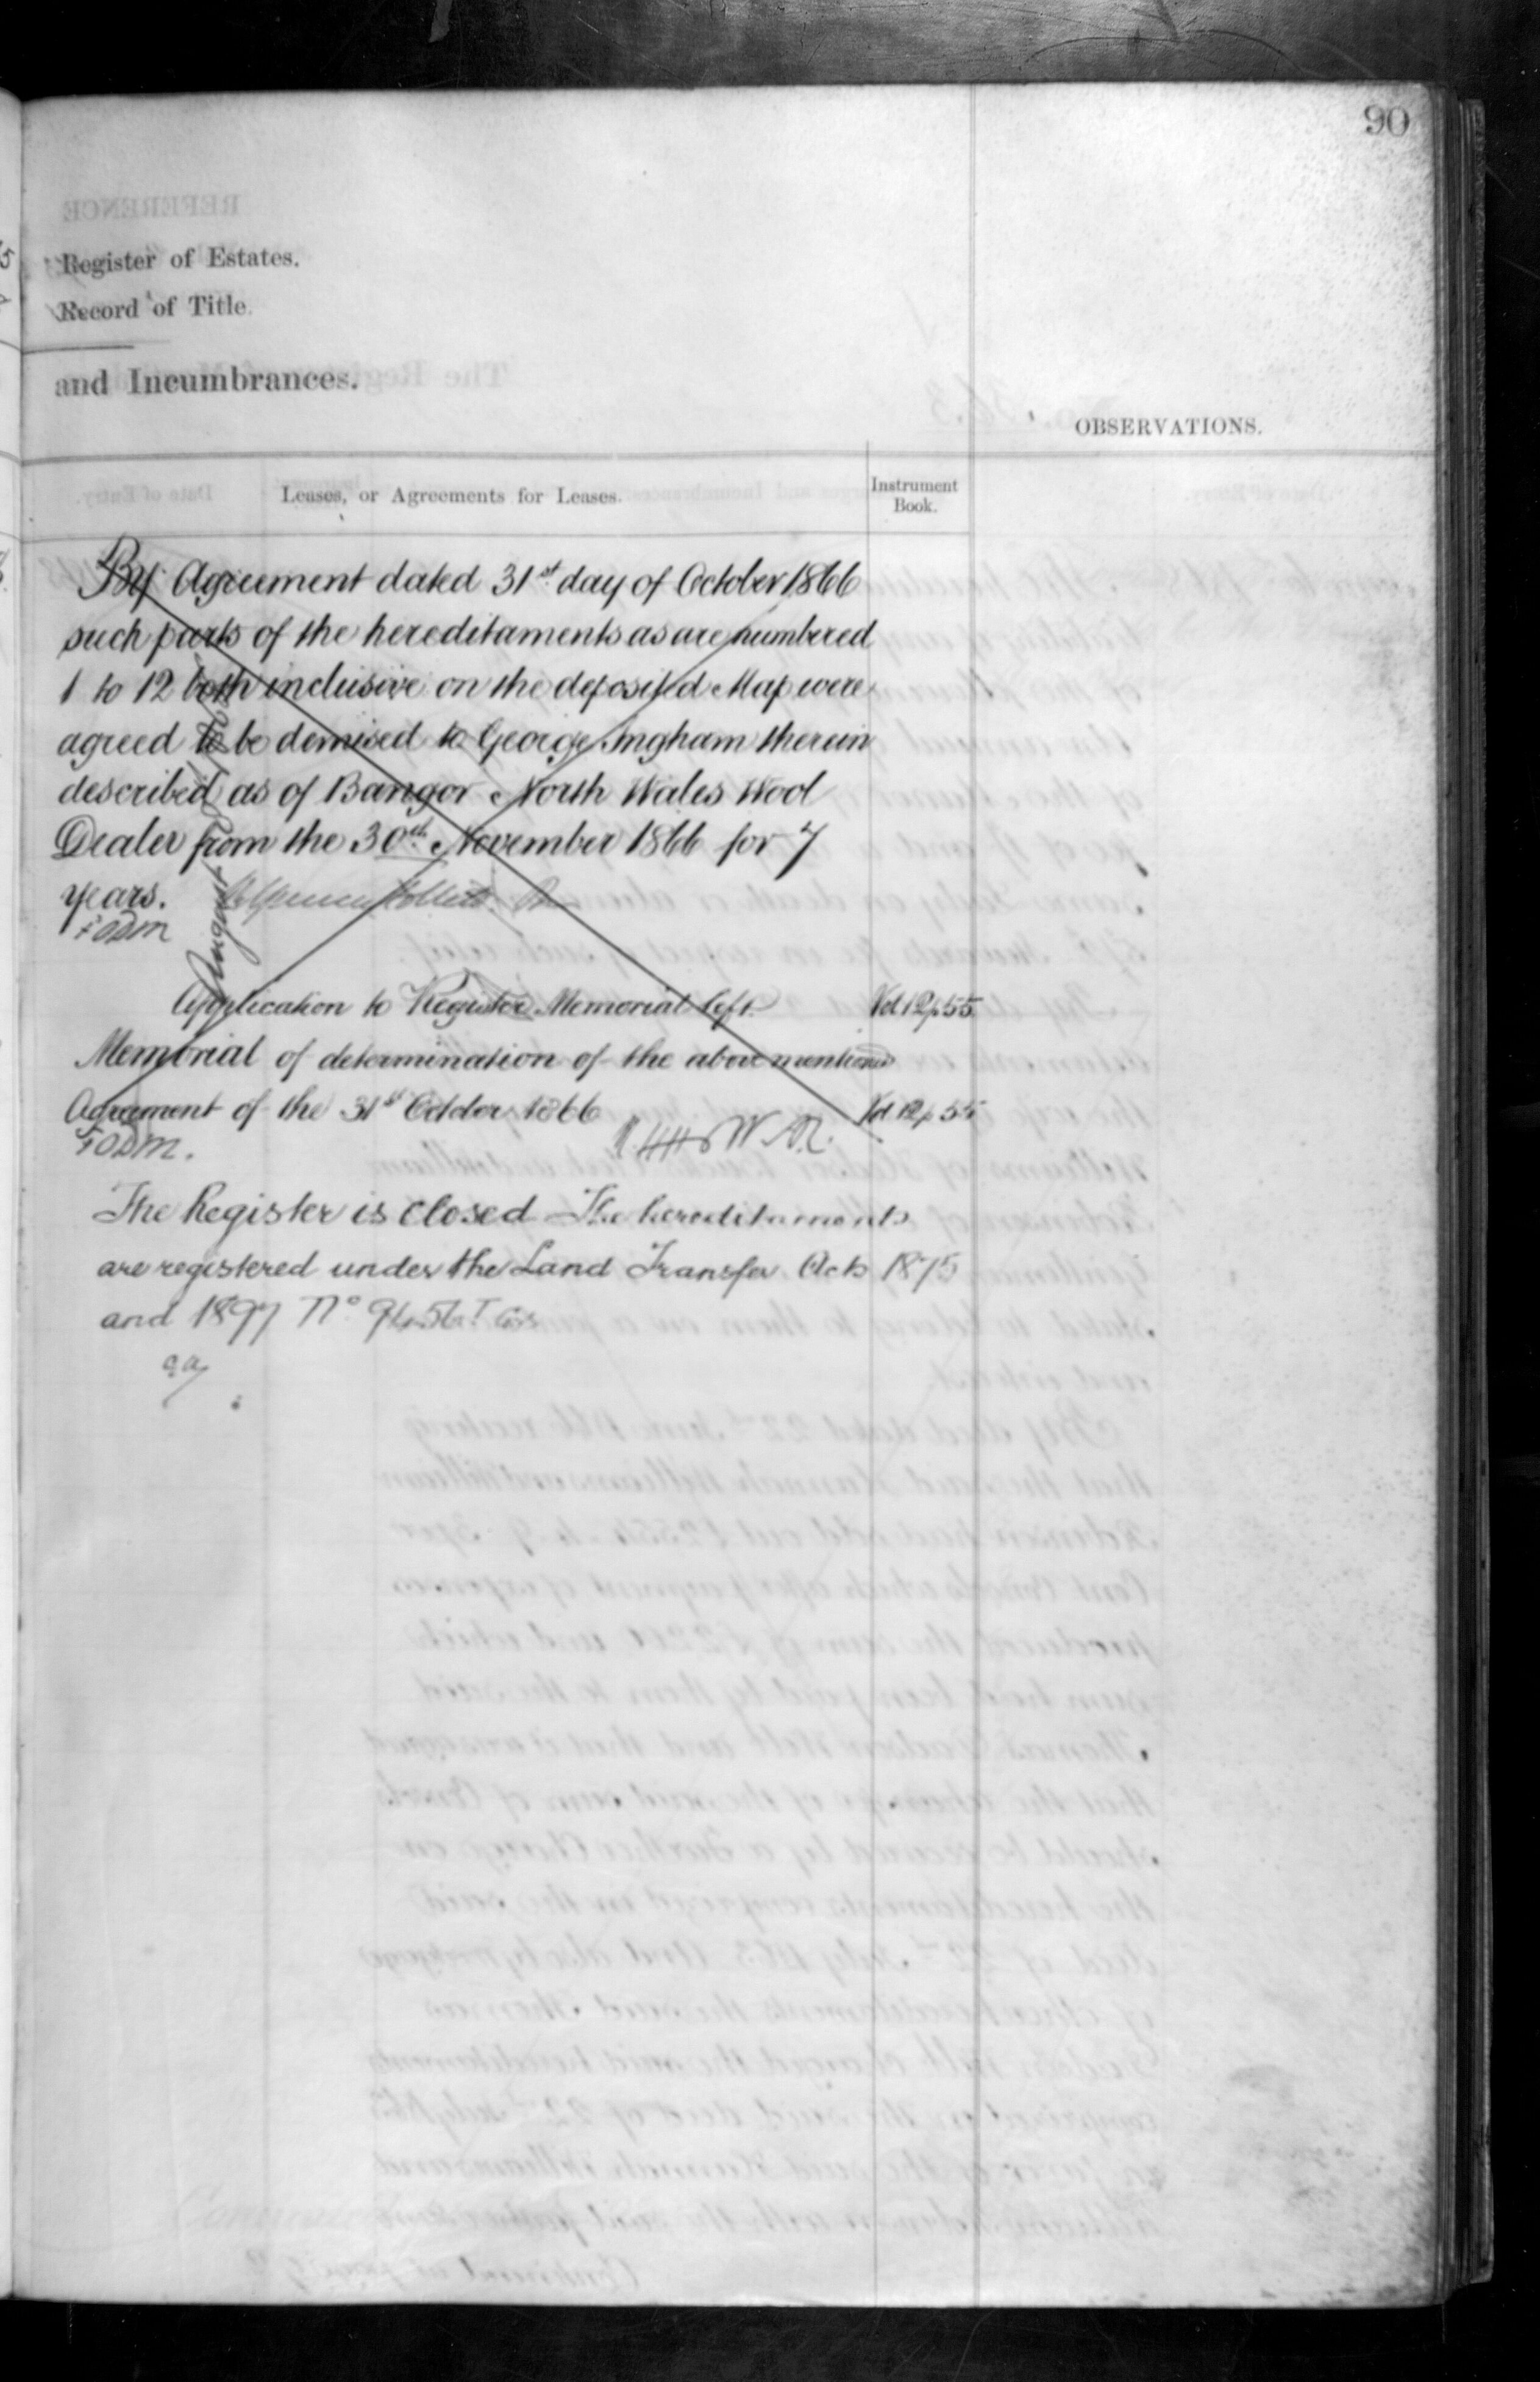 90
Register of Estates.
Record of Title.
and Incumbrances.
OBSERVATIONS.
Leases, or Agreements for Leases.
Instrument
Book.
By Agreement dated 31st day of October 1866
such parts of the hereditaments as are numbered
1 to 12 both inclusive on the deposited Map were
agreed to be demised to George Ingham therein
described as of Bangor North Wales Wool
Dealer from the 30th November 1866 for 7
years.
August
Application to Register Memorial left. Vol 12 p 55
Memorial of determination of the above mentioned
Agreement of the 31st October 1866 Vol 12 p 55
The Register is closed The hereditaments
are registered under the Land Transfer Acts 1875
and 1897 No